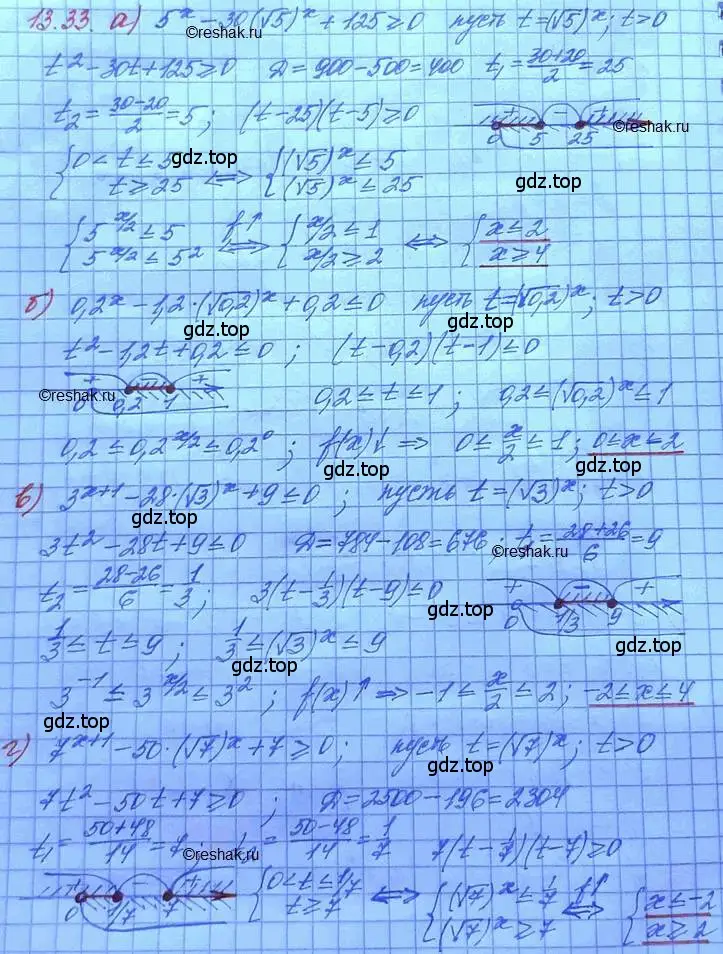 13.33. а) 5^x - 30(√5)^x + 125 ≥ 0 пусть t = (√5)^x; t > 0
©reshak.ru
t² - 30t + 125 ≥ 0 D = 900 - 500 = 400 t₁ = (30+20)/2 = 25
t₂ = (30-20)/2 = 5; (t-25)(t-5) ≥ 0 + - + 0 5 25 ©reshak.ru
{0 < t ≤ 5 ⟺ {(√5)^x ≤ 5
t ≥ 25 (√5)^x ≤ 25
gdz.top gdz.top
{5^{x/2} ≤ 5 f↑ ⟺ {x/2 ≤ 1 ⟺ {x ≤ 2
5^{x/2} ≤ 5² x/2 ≥ 2 x ≥ 4
gdz.top
б) 0,2^x - 1,2·(√0,2)^x + 0,2 ≤ 0 пусть t = (√0,2)^x; t > 0
gdz.top gdz.top
t² - 1,2t + 0,2 ≤ 0; (t-0,2)(t-1) ≤ 0
+ - + 0 0,2 1 ©reshak.ru 0,2 ≤ t ≤ 1; 0,2 ≤ (√0,2)^x ≤ 1
gdz.top
0,2 ≤ 0,2^{x/2} ≤ 0,2⁰; f(x)↓ ⇒ 0 ≤ x/2 ≤ 1; 0 ≤ x ≤ 2
gdz.top
в) 3^{x+1} - 28·(√3)^x + 9 ≤ 0; пусть t = (√3)^x; t > 0
gdz.top
3t² - 28t + 9 ≤ 0 D = 784 - 108 = 676; t₁ = (28+26)/6 = 9
©reshak.ru
t₂ = (28-26)/6 = 1/3; 3(t-1/3)(t-9) ≤ 0 + - + 0 1/3 9
gdz.top gdz.top
1/3 ≤ t ≤ 9; 1/3 ≤ (√3)^x ≤ 9
gdz.top gdz.top
3^{-1} ≤ 3^{x/2} ≤ 3²; f(x)↑ ⇒ -1 ≤ x/2 ≤ 2; -2 ≤ x ≤ 4
gdz.top
г) 7^{x+1} - 50·(√7)^x + 7 ≥ 0; пусть t = (√7)^x; t > 0
gdz.top
7t² - 50t + 7 ≥ 0; D = 2500 - 196 = 2304
t₁ = (50+48)/14 = 7; t₂ = (50-48)/14 = 1/7 7(t-1/7)(t-7) ≥ 0
©reshak.ru
+ - + 0 1/7 7 {0 < t ≤ 1/7 ⟺ {(√7)^x ≤ 1/7 f↑ ⟺ {x ≤ -2
t ≥ 7 (√7)^x ≥ 7 x ≥ 2